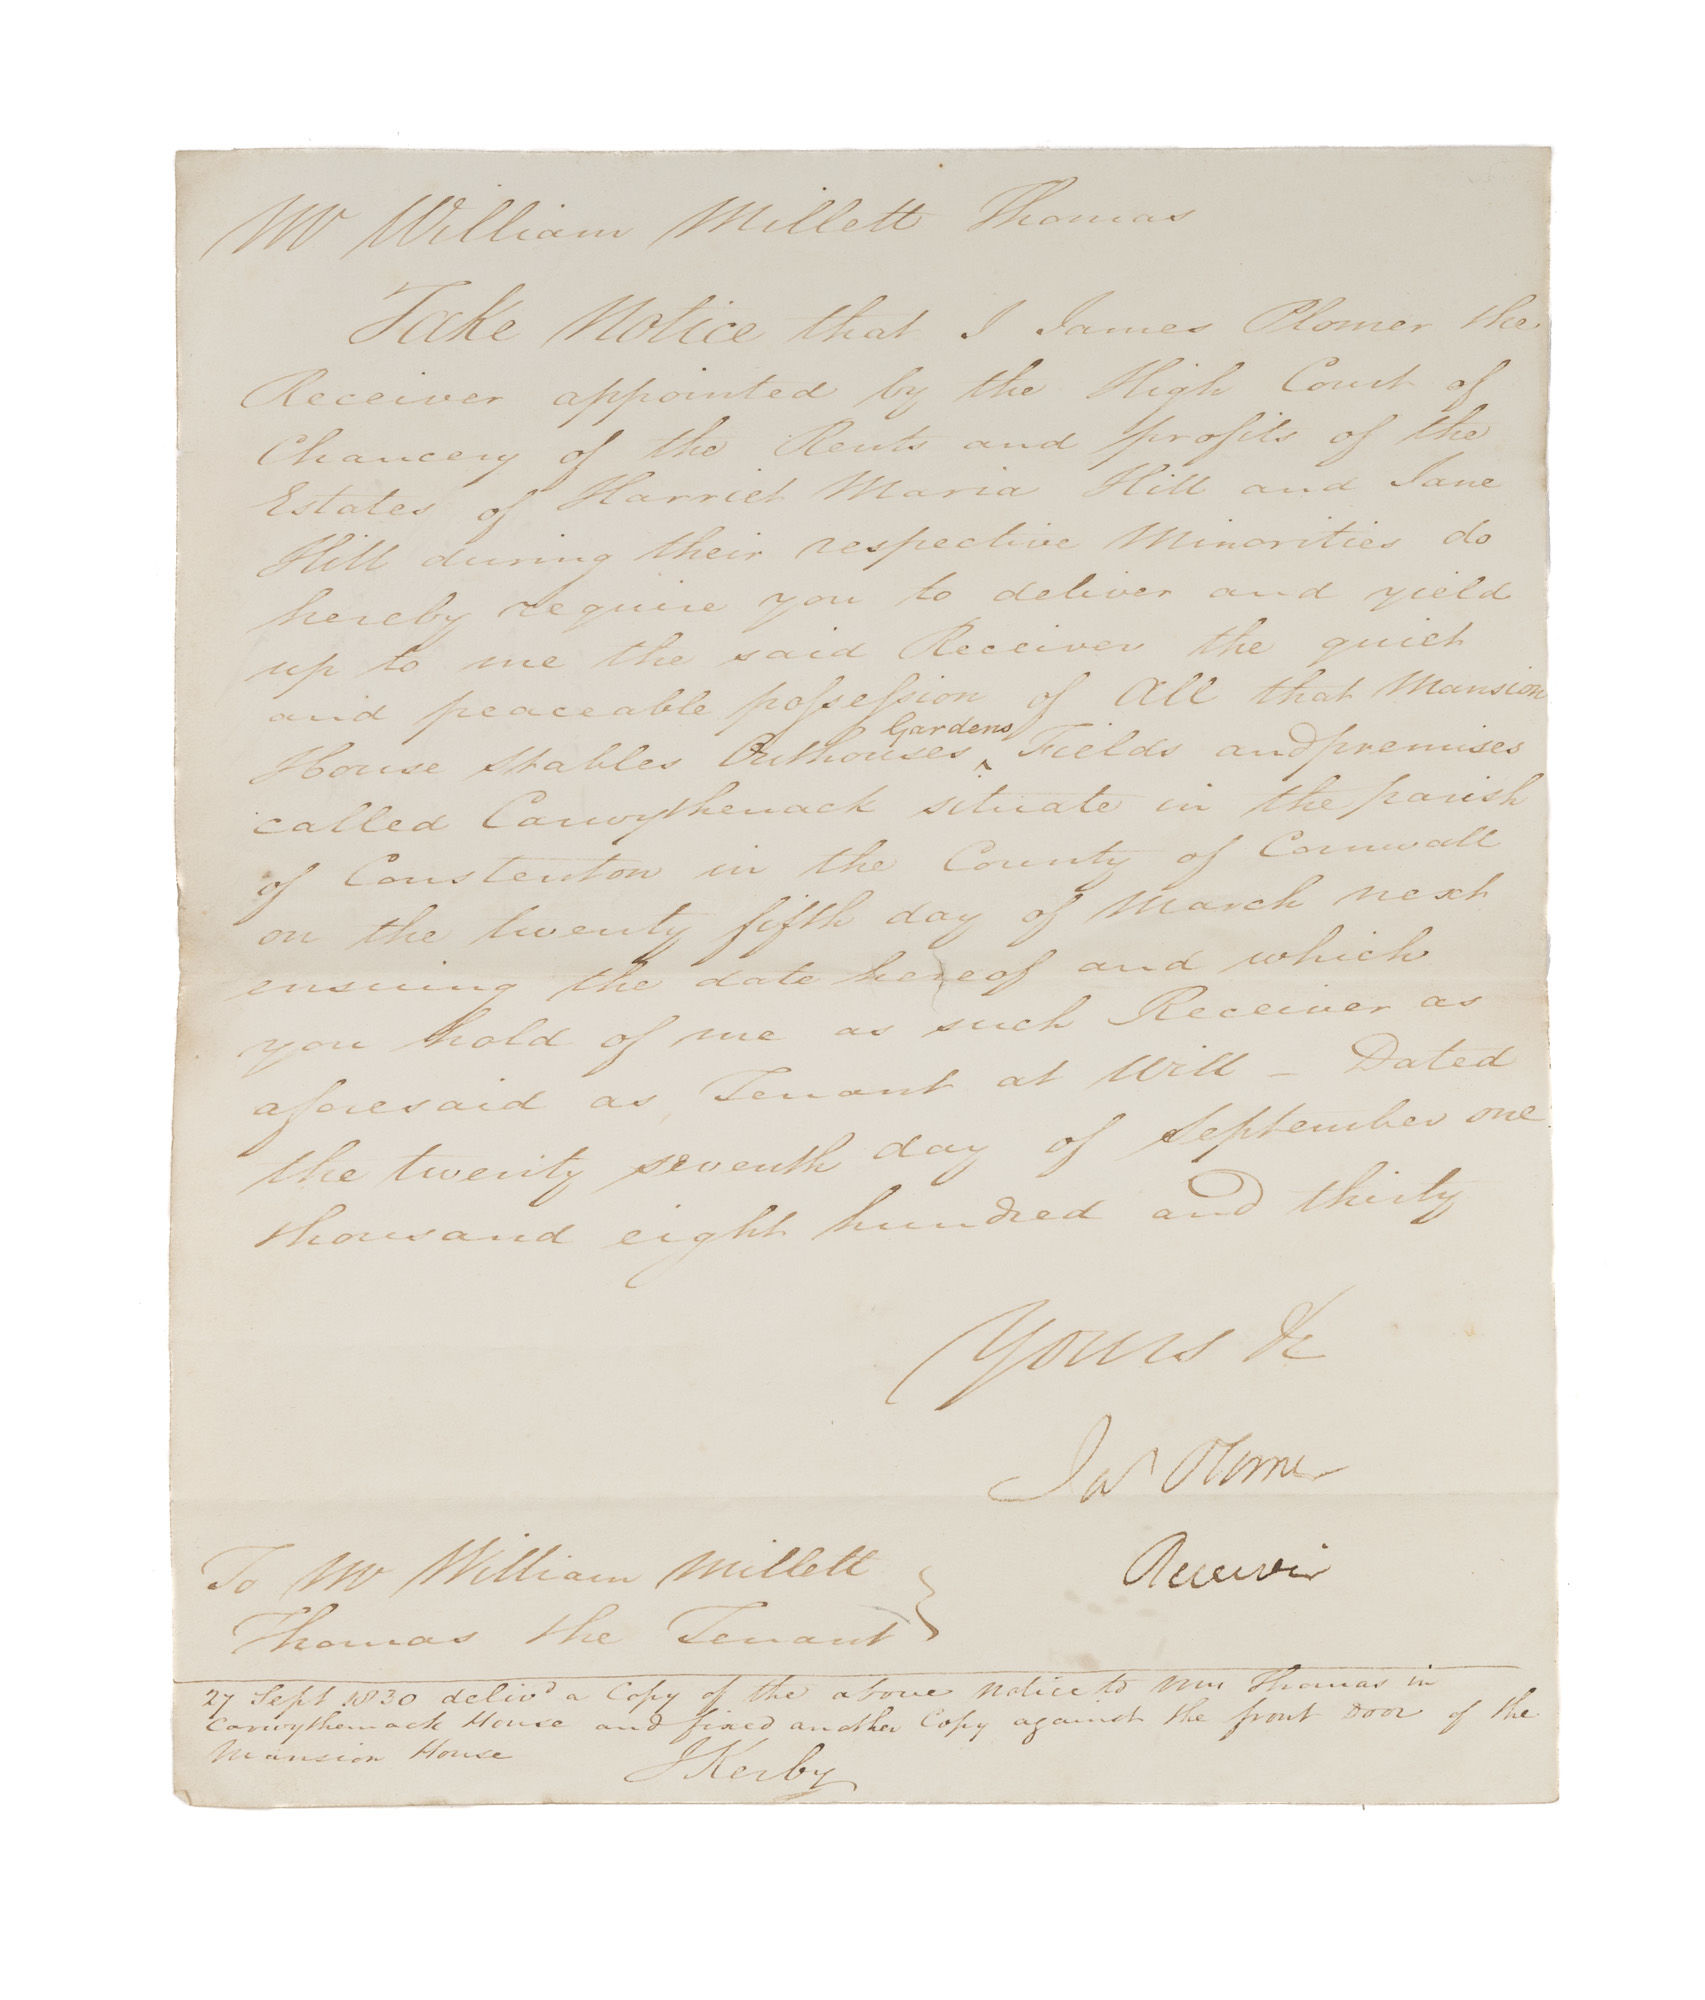 Mr William Millett Thomas
Take Notice that I James Plomer the
Receiver appointed by the High Court of
Chancery of the Rents and profits of the
Estates of Harriet Maria Hill and Jane
Hill during their respective Minorities do
hereby require you to deliver and yield
up to me the said Receiver the quiet
and peaceable possession of All that Mansion
House Stables Outhouses ^ Gardens Fields and premises
called Carwythenack situate in the parish
of Constenton in the County of Cornwall
on the twenty fifth day of March next
ensuing the date hereof and which
you hold of me as such Receiver as
aforesaid as Tenant at Will – Dated
the twenty seventh day of September one
thousand eight hundred and thirty
Yours &c
Jas Plomer
Receiver
To Mr William Millett
Thomas the Tenant }
27 Sept 1830 delivd a Copy of the above Notice to Mrs Thomas in
Carwythenack House and fixed another Copy against the front Door of the
Mansion House
J Kerby